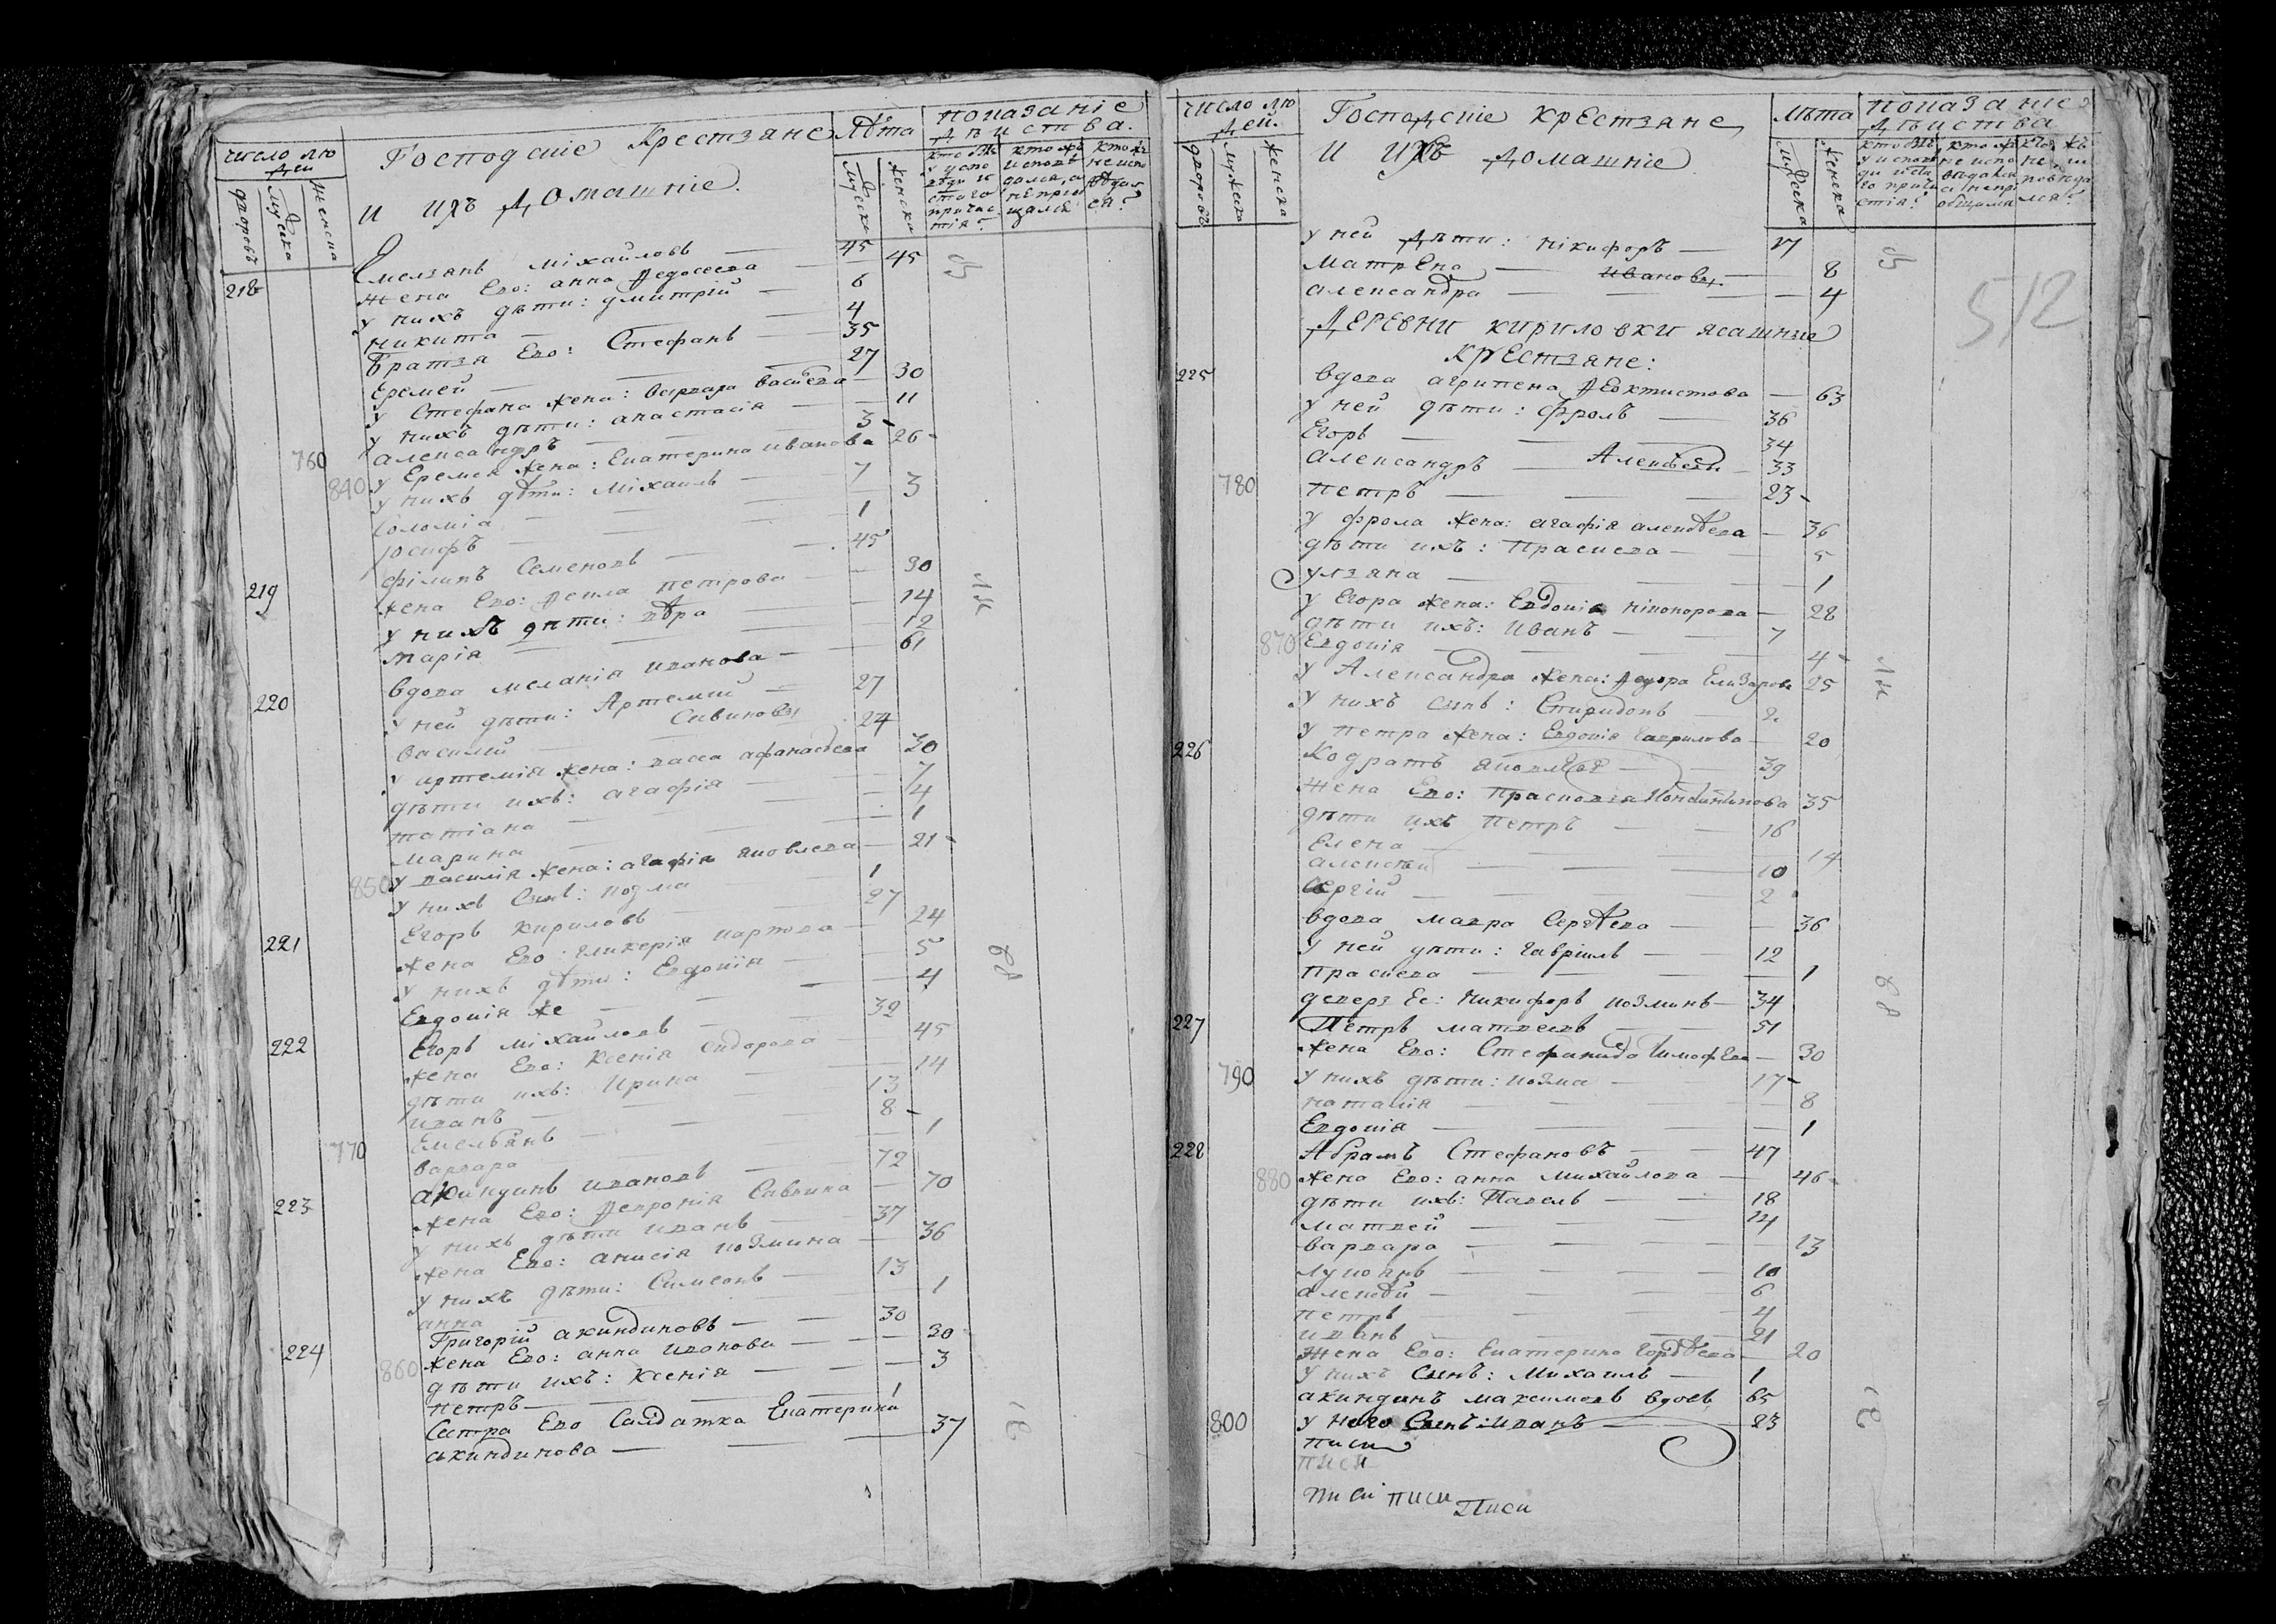 число лю
дей
дворовъ
мужска
женска
Господскіе Крестьяне
и ихъ домашніе.
Лѣта
мужска
женска
показаніе
дѣиства.
218 Емельянъ Міхайловъ — 45
жена Ево: анна Ѳедосеева — 45
у нихъ дѣти: дмитрій — 6
никита — 4
Братья Ево: Стефанъ — 35
Еремей — 27
у Стефана жена: варвара васильева — 30
у нихъ дѣти: анастасія — 11
александръ — 3
760 у Еремея жена: Екатерина иванова 26
840 у нихъ дѣти: Міхаилъ — 7
Соломіа — 3
іосифъ — 1
219 філипъ Семеновъ — 45
жена Ево: Ѳекла петрова — 30
у нихъ дѣти: вѣра — 14
марія — 12
220 вдова меланія иванова — 61
у ней дѣти: Артемий — 27
Савиновы
василей — 24
у артемія жена: васса афанасьева 30
дѣти ихъ: агафія — 7
татіана — 4
марина — 1
850 у василія жена: агафія яковлева — 21
у нихъ Сынъ: козма — 1
221 Егоръ кириловъ — 27
жена Ево: гликерія карпова — 24
у нихъ дѣти: Евдокія — 5
Евдокія же — 4
222 Егоръ Міхайловъ — 32
жена Ево: Ксенія Сидорова — 45
дѣти ихъ: Ирина — 14
иванъ — 13
Емельянъ — 8
770 варвара — 1
223 акиндинъ ивановъ — 72
жена Ево: Ѳевронія Саввина — 70
у нихъ дѣти иванъ — 37
жена Ево: анисія козмина — 36
у нихъ дѣти: Симеонъ — 13
анна — 1
224 Григорій акиндиновъ — 30
860 жена Ево: анна иванова — 30
дѣти ихъ: Ксенія — 3
петръ — 1
Систра Ево Салдатка Екатерина
акиндинова — 37
число лю
дей.
дворовъ
мужеска
женска
Господскіе крестьяне
и ихъ домашніе
лѣта
мужеска
женска
показаніе
дѣиства
512
у ней дѣти: нікифоръ — 17
Матрена — ивановы — 8
александра — 4
Деревни кириловки ясашные
крестьяне:
225 вдова агрипена Ѳеоктистова — 63
у ней дѣти: фролъ — 36
Егоръ — 34
александръ — Алексѣевы — 33
780 петръ — 23
у фрола жена: агафія алексѣева — 36
дѣти ихъ: Прасковья — 5
ульяна — 1
у Егора жена: Евдокіа никонорова — 28
дѣти ихъ: иванъ — 7
870 Евдокія — 4
у Александра жена: Ѳедора Елизарова 25
у нихъ сынъ: Спиридонъ — 2
у петра жена: Евдокія гаврилова — 20
226 Кодратъ яковлевъ — 39
жена Ево: 35
дѣти ихъ петръ — 16
Елена — 14
алексѣй — 10
Сергій — 2
вдова мавра Сергѣева — 36
у ней дѣти: гавріилъ — 12
Праскева — 1
деверь Ее: никифоръ козминъ — 34
227 Петръ матвеевъ — 51
жена Ево: Стефанида тимофеева — 30
790 у нихъ дѣти: козма — 17
наталія — 8
Евдокія — 1
228 Абрамъ Стефановъ — 47
880 жена Ево: анна Михайлова — 46
дѣти ихъ: Павелъ — 18
матвей — 14
варвара — 13
лукоянъ — 10
алексѣй — 6
петръ — 4
иванъ — 21
жена Ево: Екатерина гордѣева — 20
у нихъ Сынъ: Михаилъ — 1
акиндинъ максимовъ вдовъ 65
800 у него Сынъ: Иванъ — 23
писи
писи
писи писи Писи